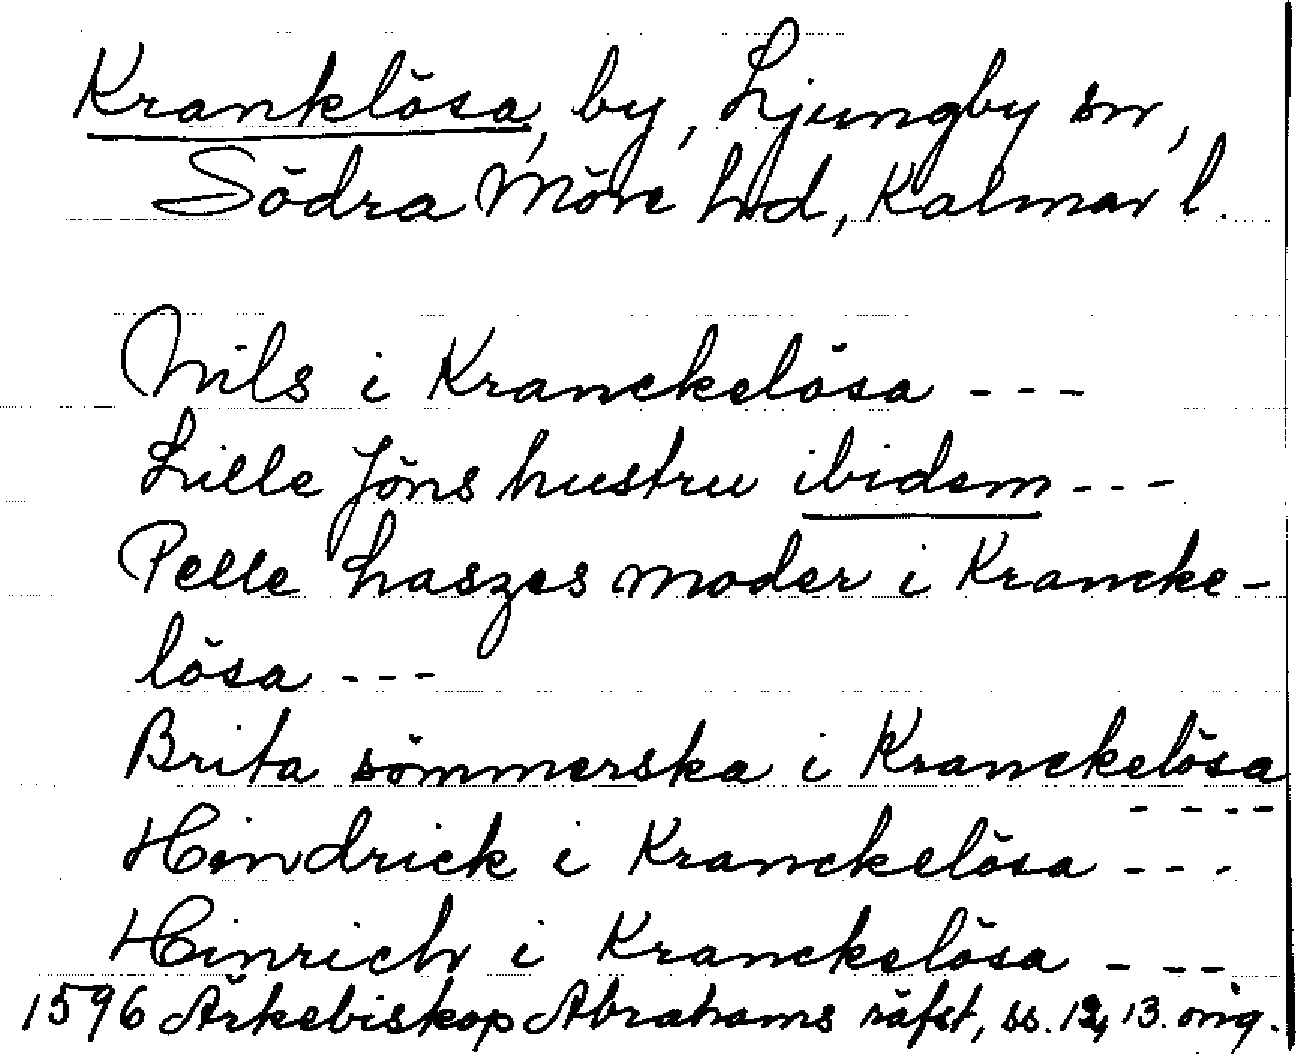 Kranklösa, by, Ljungby sn,
Södra Möre hd, Kalmar l.
Nils i Kranckelösa ---
Lille Jöns hustru ibidem ---
Pelle Laszes moder i Krancke-
lösa ---
Brita sömmerska i Kranckelösa
----
Hindrick i Kranckelösa ---
Hinrich i Kranckelösa ---
1596 Ärkebiskop Abrahams räfst, ss. 12, 13. orig.